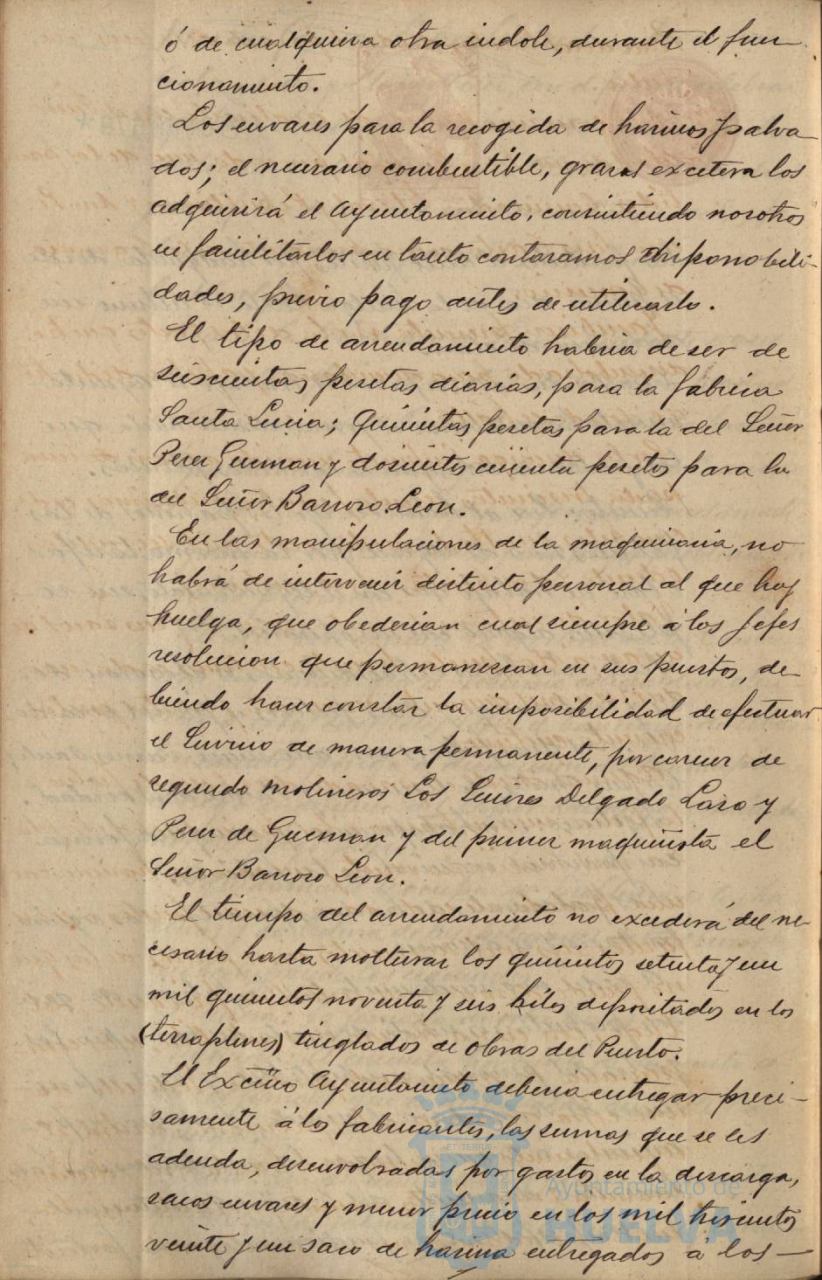 ó de cualquiera otra indole, durante el fun-
cionamiento.
Los envases para la recogida de harinas y salva-
dos; el necesario combustible, grasas excetera los
adquirirá el Ayuntamiento, consintiendo nosotros
en facilitarlos en tanto contaramos disponobili-
dades, previo pago antes de utilizarlo.
El tipo de arrendamiento habria de ser de
seiscientas pesetas diarias, para la fabrica
Santa Lucia; Quinientas pesetas para la del Señor
Perez Guzman y doscientos cincuenta pesetas para la
del Señor Barroso Leon.
En las manipulaciones de la maquinaria, no
habrá de intervenir distinto personal al que hoy
huelga, que obedecian cual siempre á los Jefes
resolucion que permanezcan en sus puestos, de-
biendo hacer constar la imposibilidad de efectuar
el Servicio de manera permanente, por carecer de
segundo molineros Los Señores Delgado Lazo y
Perez de Guzman y del primer maquinista el
Señor Barroso Leon.
El tiempo del arrendamiento no excederá del ne-
cesario hasta molturar los quinientos setenta y un
mil quinientos noventa y seis kilos depositados en los
(terraplenes) tinglados de obras del Puerto.
El Excmo Ayuntamiento deberia entregar preci-
samente á los fabricantes, las sumas que se les
adeuda, desembolsadas por gastos en la descarga,
sacos envases y menor precio en los mil trescientos
veinte y un saco de harina entregados á los
Ayuntamiento de
HUELVA